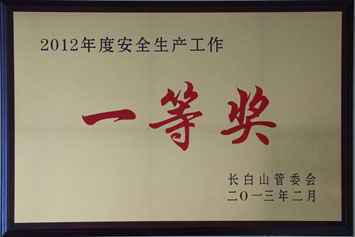 2012年度安全生产工作
一等奖
长白山管委会
二〇一三年二月